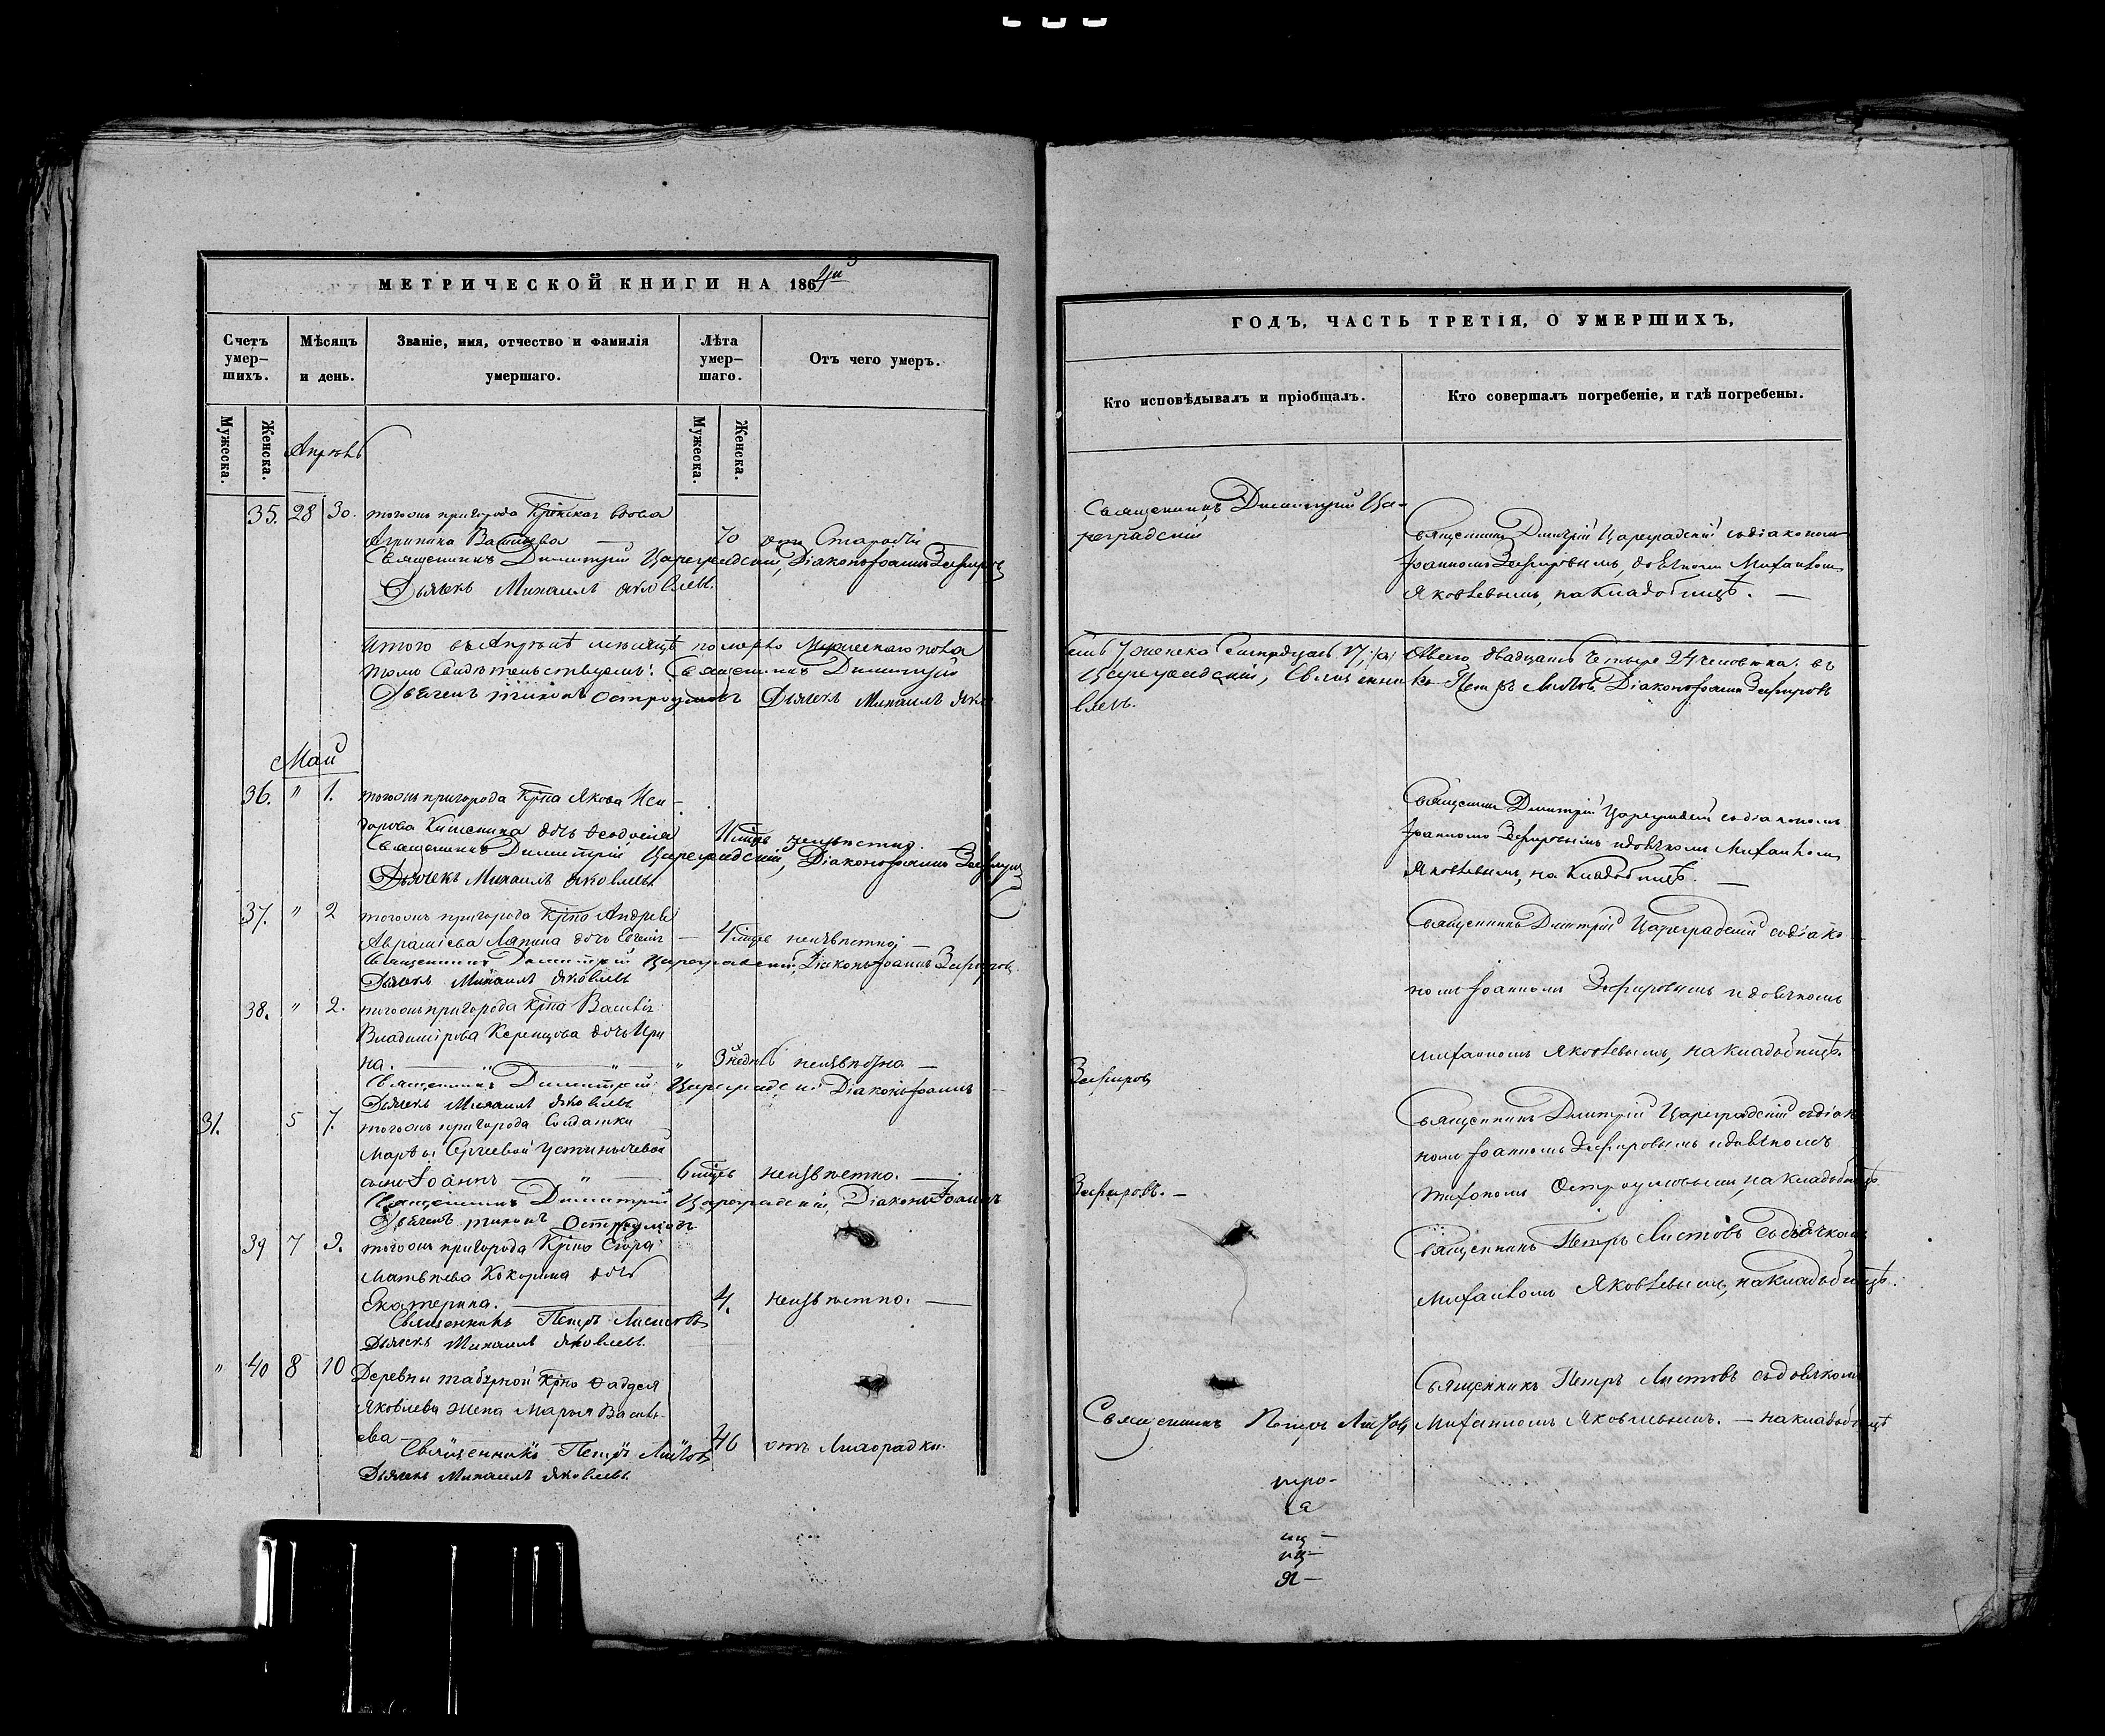 МЕТРИЧЕСКОЙ КНИГИ НА 186
Счетъ умер-шихъ.
Мѣсяцъ и день.
Званіе, имя, отчество и фамилія умершаго.
Лѣта умер-шаго.
Отъ чего умеръ.
Мужеска.
Женска.
Мужеска.
Женска.
Апрѣль
35. 28 30. тогожъ пригорода вдова
Агрипина 70 отъ Старости
Священникъ Димитрій Цареградскій, Діаконъ Іоаннъ Зефировъ
Дьячекъ Михаилъ Яковлевъ.
Итого въ Апрѣлѣ мѣсяцѣ померло Мужескаго пола
томъ Свидѣтельствуемъ: Священникъ Димитрій
Дьячекъ Тихонъ Остроумовъ Дьячекъ Михаилъ Яко
Май
36. " 1. тогожъ пригорода Крна Якова
дочь Ѳеодосія 11 мцъ неизвѣстно.
Священникъ Димитрій Цареградскій, Діаконъ Іоаннъ Зефировъ
Дьячекъ Михаилъ Яковлевъ
37. " 2 тогожъ пригорода Крна Андрея
Аврамiева Лапина дочь Евгенія — 4 мцъ неизвѣстно —
Священникъ Димитрій Цареградскій, Діаконъ Іоаннъ Зефировъ
Дьячекъ Михаилъ Яковлевъ
38. " 2. тогожъ пригорода Крна Василія
Владимірова Керенцова дочь Ири
на. — " — " 3 недѣль неизвѣстно —
Священникъ Димитрій Цареградскій Діаконъ Іоаннъ
Дьячекъ Михаилъ Яковлевъ
31. 5 7. тогожъ пригорода Солдатки
Марѳы Сергеевой Устинычевой
сынъ Іоаннъ — " — 6 мцъ неизвѣстно. —
Священникъ Димитрій Цареградскій, Діаконъ Іоаннъ
Дьячекъ Тихонъ Остроумовъ
39 7 9. тогожъ пригорода Крна Егора
Матвѣева Кокорина дочь
Екатерина. — 4. неизвѣстно. —
Священникъ Петръ Листовъ
Дьячекъ Михаилъ Яковлевъ.
" 40 8 10 Деревни Крна Ѳаддея
Яковлева жена Марья Василь
ева — 46 отъ Лихорадки.
Священникъ Петръ Листовъ
Дьячекъ Михаилъ Яковлевъ
ГОДЪ, ЧАСТЬ ТРЕТІЯ, О УМЕРШИХЪ,
Кто исповѣдывалъ и пріобщалъ.
Кто совершалъ погребеніе, и гдѣ погребены.
Священникъ Димитрій Ца-
реградскій
Священникъ Дмитрій Цареградскій съ діакономъ
Іоанномъ Зефировымъ, дьячкомъ Михаиломъ
Яковлевымъ, на Кладбищѣ. —
семь 7, женска Семнадцать 17; Всего двадцать четыре 24 человѣка; въ
Цареградскій, Священникъ Петръ Листовъ Діаконъ Іоаннъ Зефировъ
влевъ.
Священникъ Дмитрій Цареградскій съ діакономъ
Іоанномъ Зефировымъ и дьячкомъ Михаиломъ
Яковлевымъ, на Кладбищѣ. —
Священникъ Дмитрій Цареградскій съ діако
номъ Іоанномъ Зефировымъ и дьячкомъ
Михаиломъ Яковлевымъ, на кладбищѣ.
Зефировъ
Священникъ Дмитрій Цареградскій съ діако
номъ Іоанномъ Зефировымъ и дьячкомъ
Тихономъ Остроумовымъ, на кладбищѣ.
Зефировъ. —
Священникъ Петръ Листовъ съ дьячкомъ
Михаиломъ Яковлевымъ, на кладбищѣ.
Священникъ Петръ Листовъ съ дьячкомъ
Священникъ Петръ Листовъ Михаиломъ Яковлевымъ. — на кладбищѣ